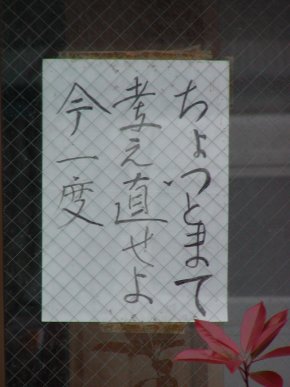 ちょっとまて
考え直せよ
今一度